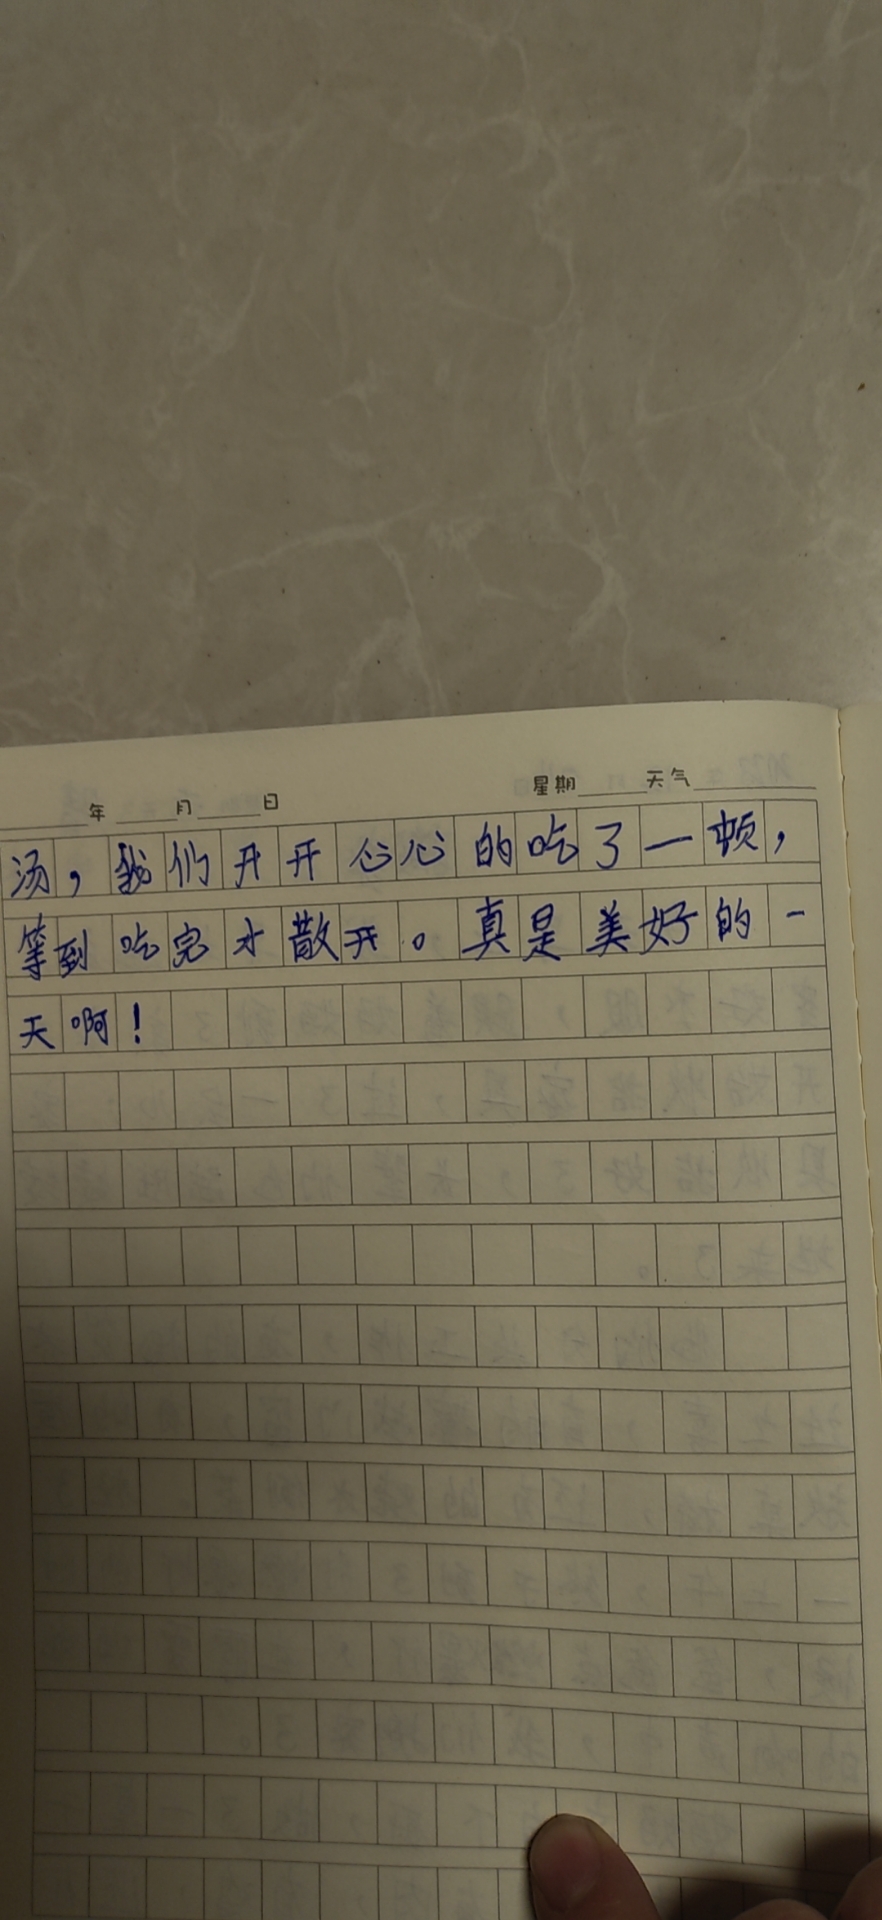 年 月 日 星期 天气
汤，我们开开心心的吃了一顿，
等到吃完才散开。真是美好的一
天啊！